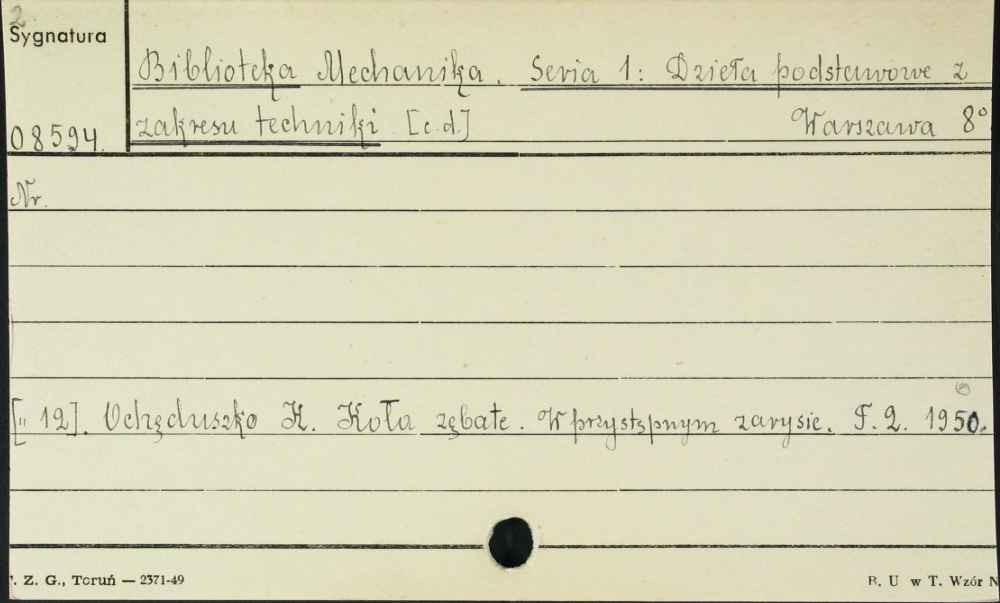 2
Sygnatura
Biblioteka Mechanika. Seria 1: Dzieła podstawowe z
08594. zakresu techniki [c.d.] Warszawa 8°
Nr.
[" 12]. Ochęduszko K. Koła zębate. W przystępnym zarysie. T. 2. 1950.
. Z. G., Toruń — 2371-49 B. U w T. Wzór N